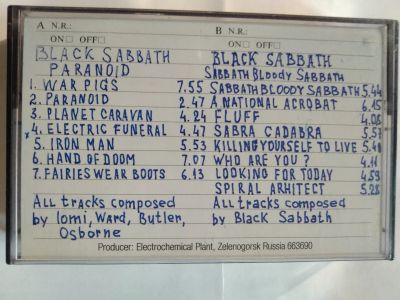 A N.R.:
ON□ OFF□
BLACK SABBATH
PARANOID
1. WAR PIGS 7.55
2. PARANOID 2.47
3. PLANET CARAVAN 4.24
4. ELECTRIC FUNERAL 4.47
5. IRON MAN 5.53
6. HAND OF DOOM 7.07
7. FAIRIES WEAR BOOTS 6.13
All tracks composed
by Iomi, Ward, Butler,
Osborne
B N.R.:
ON□ OFF□
BLACK SABBATH
SABBATH BLOODY SABBATH
SABBATH BLOODY SABBATH 5.44
A NATIONAL ACROBAT 6.15
FLUFF 4.08
SABRA CADABRA 5.57
KILLING YOURSELF TO LIVE
WHO ARE YOU? 4.11
LOOKING FOR TODAY 4.59
SPIRAL ARHITECT 5.28
All tracks composed
by Black Sabbath
Producer: Electrochemical Plant, Zelenogorsk Russia 663690